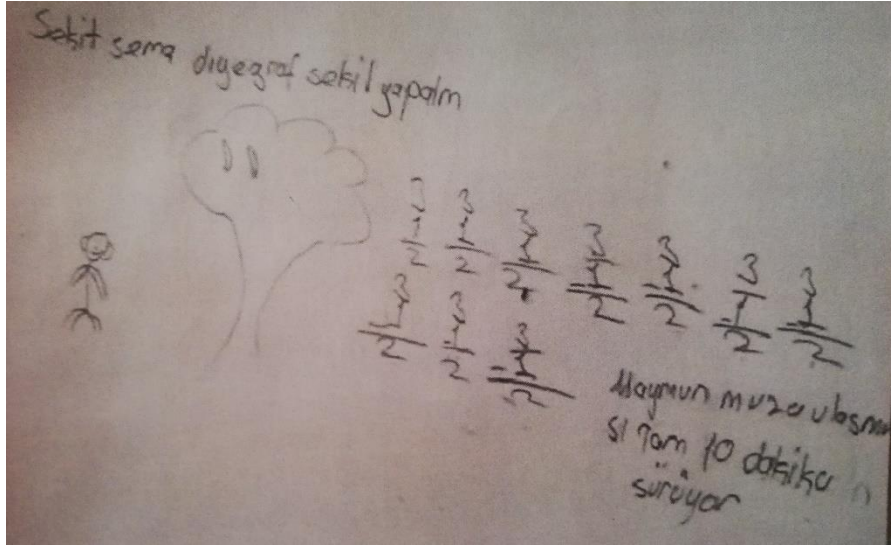 Sekit sema diyegraf sekil yapalm
3 3 3 3 3 3 3
-1 -1 -1 -1 -1 -1 -1
2 2 2 2 2 2 2
3 3 3
-1 -1 -1
2 2 2
Maymun muza ulasma
sı Tam 10 dakika
sürüyor